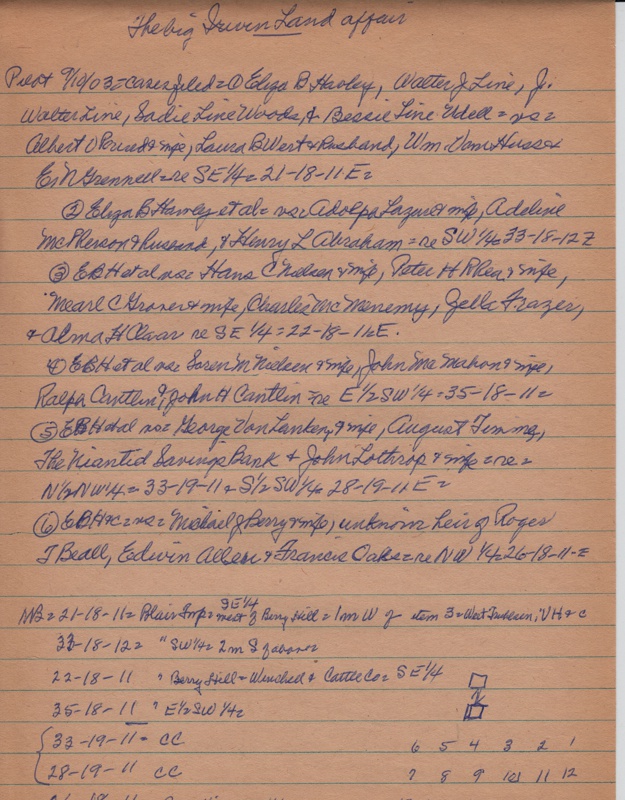 The big Irvin Land affair
Pilot 9/10/03 = cases filed = ① Eliza B Hawley, Walter J Line, Jr.
Walter Line, Sadie Line Woods, & Bessie Line Udell = vs =
Albert & wife, Laura B West & Husband, Wm Van Husse &
Grennell = re SE 1/4 = 21-18-11 E =
② Eliza B Hawley et al = vs = & wife, Adeline
McPherson & husband, & Henry L Abraham = re SW 1/4 33-18-12 E
③ EBH et al vs = Hans C Nielsen & wife, Peter H Rhea & wife,
Mearl C Grover & wife, Charlie McMenemy, Zella Frazer,
& Alma H Claar re SE 1/4 = 22-18-11 E.
④ EBH et al vs = Soren M Nielsen & wife, John McMahon & wife,
Ralph Cantlin, & John H Cantlin = re E 1/2 SW 1/4 = 35-18-11 =
⑤ EBH et al vs = George Von Lanken & wife, August Timme,
The Niantid Savings Bank & John Lothrop & wife = re =
N 1/2 NW 1/4 = 33-19-11 & S 1/2 SW 1/4 28-19-11 E =
⑥ EBH &c = vs = Michael J Berry & wife, unknown heirs of Roger
T Beall, Edwin Allen & Francis Oaks = re NW 1/4 = 26-18-11-E
NB = 21-18-11 = Blair Twp = SE 1/4 of Berry Hill = 1 m W of item 3 =
33-18-12 = " SW 1/4 = 2 m S
22-18-11 " Berry Hill = & Cattle Co = SE 1/4
35-18-11 " E 1/2 SW 1/4 =
33-19-11 = CC 6 5 4 3 2 1
28-19-11 CC 7 8 9 10 11 12